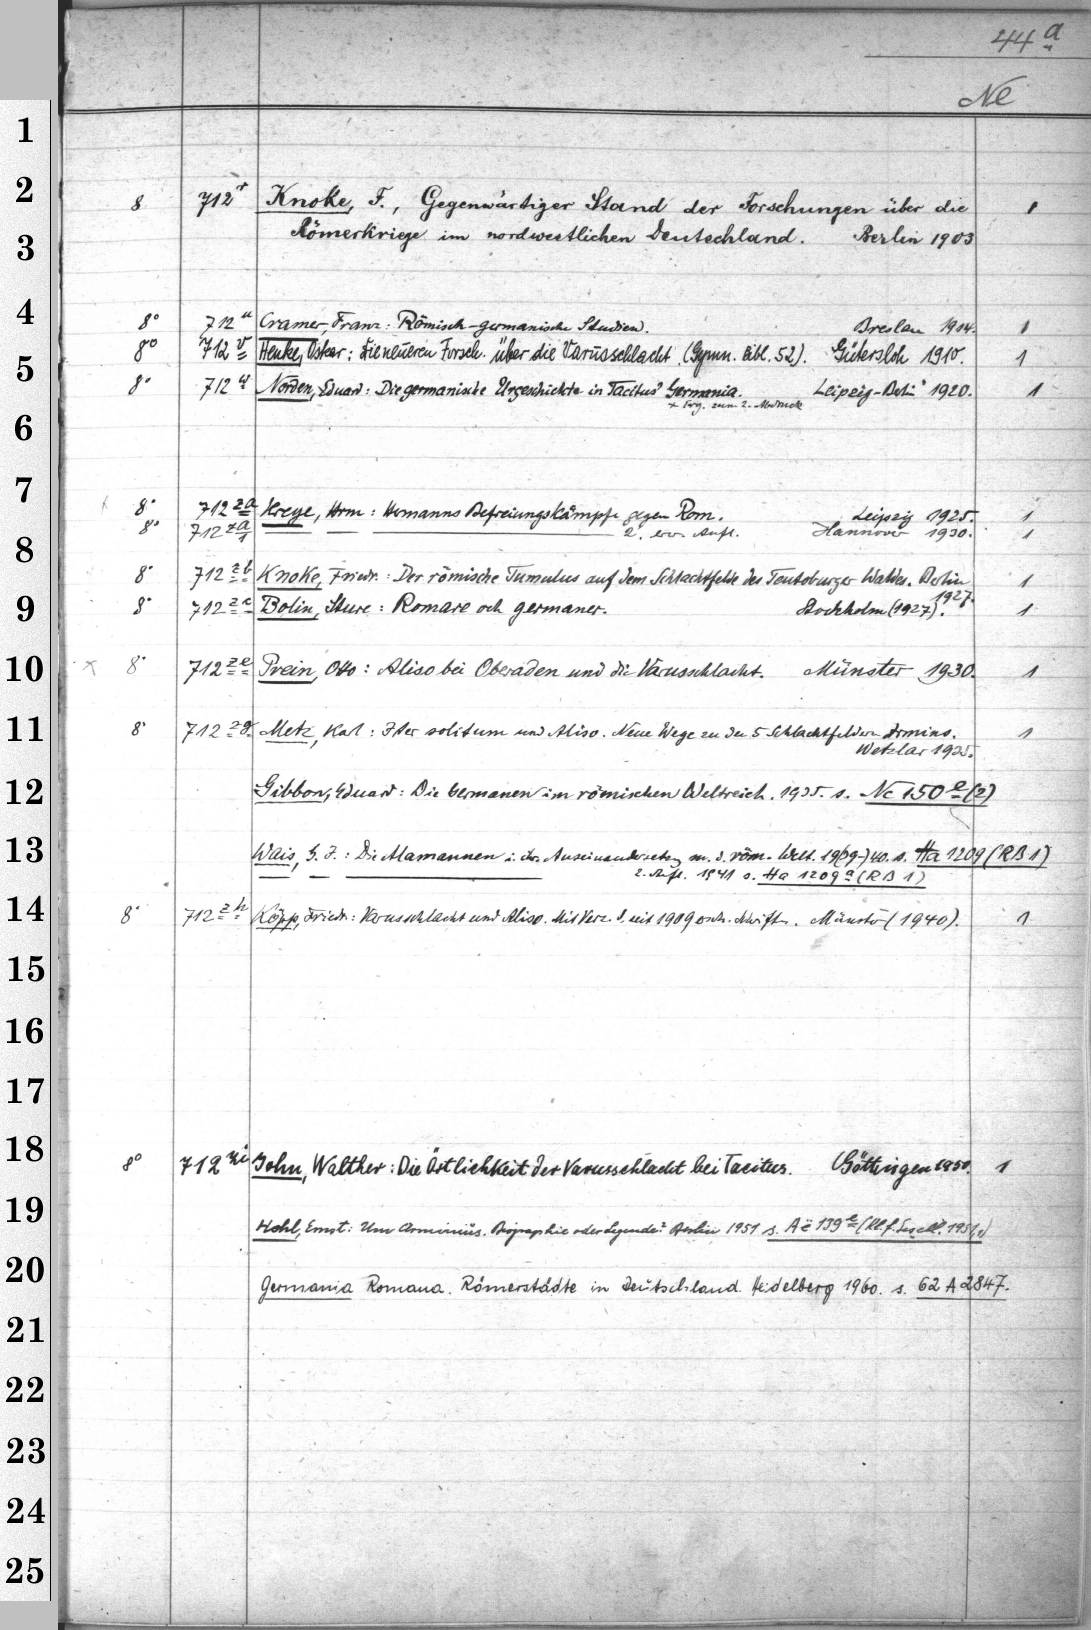 44 a
Ne
1
2
3
4
5
6
7
8
9
10
11
12
13
14
15
16
17
18
19
20
21
22
23
24
25
8 712 t Knoke, F., Gegenwärtiger Stand der Forschungen über die 1
Römerkriege im nordwestlichen Deutschland. Berlin 1903
8° 712 u Cramer, Franz: Römisch-germanische Studien. Breslau 1914. 1
8° 712 v Henke, Oskar: Die neueren Forsch. über die Varusschlacht (Gymn. Bibl. 52). Gütersloh 1910. 1
8° 712 w Norden, Eduard: Die germanische Urgeschichte in Tacitus' Germania. Leipzig-Berlin 1920. 1
+ Erg. zum 2. Abdruck
8° 712 za Kreye, Hrm: Hermanns Befreiungskämpfe gegen Rom. Leipzig 1925. 1
8° 712 za 1 2. erw. Aufl. Hannover 1930. 1
8° 712 zb Knoke, Friedr.: Der römische Tumulus auf dem Schlachtfelde des Teutoburger Waldes. Berlin 1
1927.
8° 712 zc Bolin, Sture: Romare och germaner. Stockholm (1927). 1
x 8° 712 ze Prein, Otto: Aliso bei Oberaden und die Varusschlacht. Münster 1930. 1
8° 712 zg Metz, Karl: Iter solitum und Aliso. Neue Wege zu den 5 Schlachtfeldern Armins. 1
Wetzlar 1935.
Gibbon, Eduard: Die Germanen im römischen Weltreich. 1935. s. Nc 150 e (2)
Wais, G. J.: Die Alamannen i. ihr. Auseinandersetzg m. d. röm. Welt. 19(39-)40. s. Ha 1209 (RB 1)
2. Aufl. 1941 s. Ha 1209 a (RB 1)
8° 712 zh Köpp, Friedr.: Varusschlacht und Aliso. Mit Verz. d. seit 1909 Schrift. Münster (1940). 1
8° 712 zi John, Walther: Die Örtlichkeit der Varusschlacht bei Tacitus. Göttingen 1950. 1
Hohl, Ernst: Um Arminius. Biographie oder Legende? Berlin 1951 s. Aë 139 (Kl. f. Gesell. 1951,1)
Germania Romana. Römerstädte in Deutschland. Heidelberg 1960. s. 62 A 2847.